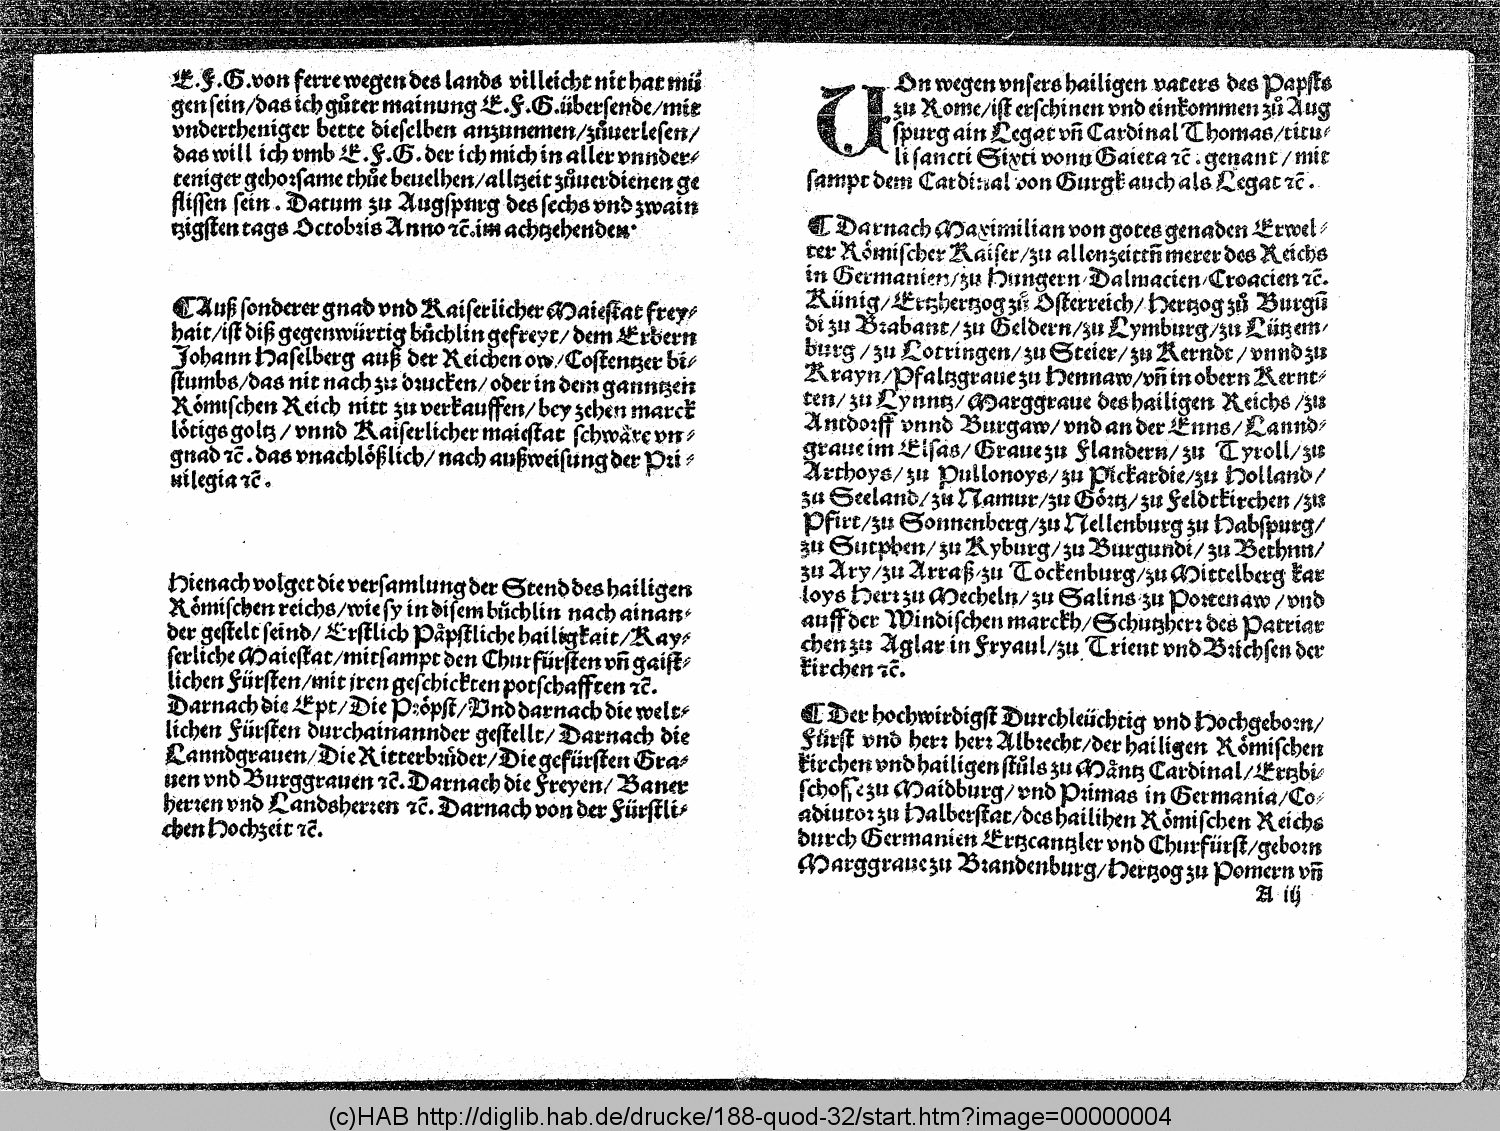 E.F.G.von ferre wegen des lands villeicht nit hat mü
gen sein/das ich gůter mainung E.F.G.übersende/mit
vndertheniger bette dieselben anzunemen/zůuerlesen/
das will ich vmb E.F.G.der ich mich in aller vnnder⸗
teniger gehorsame thůe beuelhen/alltzeit zůuerdienen ge
flissen sein. Datum zu Augspurg des sechs vnd zwain
tzigsten tags Octobris Anno ꝛc̄.im achtzehenden.
¶Auß sonderer gnad vnd Kaiserlicher Maiestat frey⸗
hait/ist diß gegenwürtig bůchlin gefreyt/dem Erbern
Johann Haselberg auß der Reichen ow/Costentzer bi⸗
stumbs/das nit nach zu drucken/oder in dem ganntzen
Rômischen Reich nitt zu verkauffen/bey zehen marck
lôtigs goltz/vnnd Kaiserlicher maiestat schwåre vn⸗
gnad ꝛc̄.das vnachlôßlich/nach außweisung der Pri⸗
uilegia ꝛc̄.
Hienach volget die versamlung der Stend des hailigen
Rômischen reichs/wie sy in disem bůchlin nach ainan⸗
der gestelt seind/Erstlich Påpstliche hailigkait/Kay⸗
serliche Maiestat/mitsampt den Churfürsten vn̄ gaist⸗
lichen Fürsten/mit iren geschickten potschafften ꝛc̄.
Darnach die Ept/Die Prôpst/Vnd darnach die welt⸗
lichen Fürsten durchainannder gestellt/Darnach die
Lanndgrauen/Die Ritterbrůder/Die gefürsten Gra⸗
uen vnd Burggrauen ꝛc̄.Darnach die Freyen/Baner
herren vnd Landsherren ꝛc̄.Darnach von der Fürstli⸗
chen Hochzeit ꝛc̄.
VOn wegen vnsers hailigen vaters des Papsts
zu Rome/ist erschinen vnd einkommen zů Aug
spurg ain Legat vn̄ Cardinal Thomas/titu⸗
li sancti Sixti vonn Gaieta ꝛc̄.genant/mit
sampt dem Cardinal von Gurgk auch als Legat ꝛc̄.
¶Darnach Maximilian von gotes genaden Erwel⸗
ter Rômischer Kaiser/zu allenzeittn̄ merer des Reichs
in Germanien/zu Hungern/Dalmacien/Croacien ꝛc̄.
Künig/Ertzhertzog zů Osterreich/Hertzog zů Burgū
di zu Brabant/zu Geldern/zu Lymburg/zu Lützem⸗
burg/zu Lottringen/zu Steier/zu Kerndt/vnnd zu
Krayn/Pfaltzgraue zu Hennaw/vn̄ in obern Kernt⸗
ten/zu Lynntz/Marggraue des hailigen Reichs/zu
Antdorff vnnd Burgaw/vnd an der Enns/Lannd⸗
graue im Elsas/Graue zu Flandern/zu Tyroll/zu
Arthoys/zu Pullonoys/zu Pickardie/zu Holland/
zu Seeland/zu Namur/zu Gôrtz/zu Feldtkirchen/zu
Pfirt/zu Sonnenberg/zu Nellenburg zu Habspurg/
zu Sutphen/zu Kyburg/zu Burgundi/zu Bethnn/
zu Ary/zu Arraß/zu Tockenburg/zu Mittelberg kar
loys Herr zu Mecheln/zu Salins zu Portenaw/vnd
auff der Windischen marckh/Schutzherr des Patriar
chen zu Aglar in Fryaul/zu Trient vnd Brichsen der
kirchen ꝛc̄.
¶Der hochwirdigst Durchleüchtig vnd Hochgeborn/
Fürst vnd herr herr Albrecht/der hailigen Rômischen
kirchen vnd hailigen stůls zu Måntz Cardinal/Ertzbi⸗
schoffe zu Maidburg/vnd Primas in Germania/Co⸗
adiutor zu Halberstat/des hailihen Rômischen Reichs
durch Germanien Ertzcantzler vnd Churfürst/geborn
Marggraue zu Brandenburg/Hertzog zu Pomern vn̄
A iij
(c)HAB http://diglib.hab.de/drucke/188-quod-32/start.htm?image=00000004